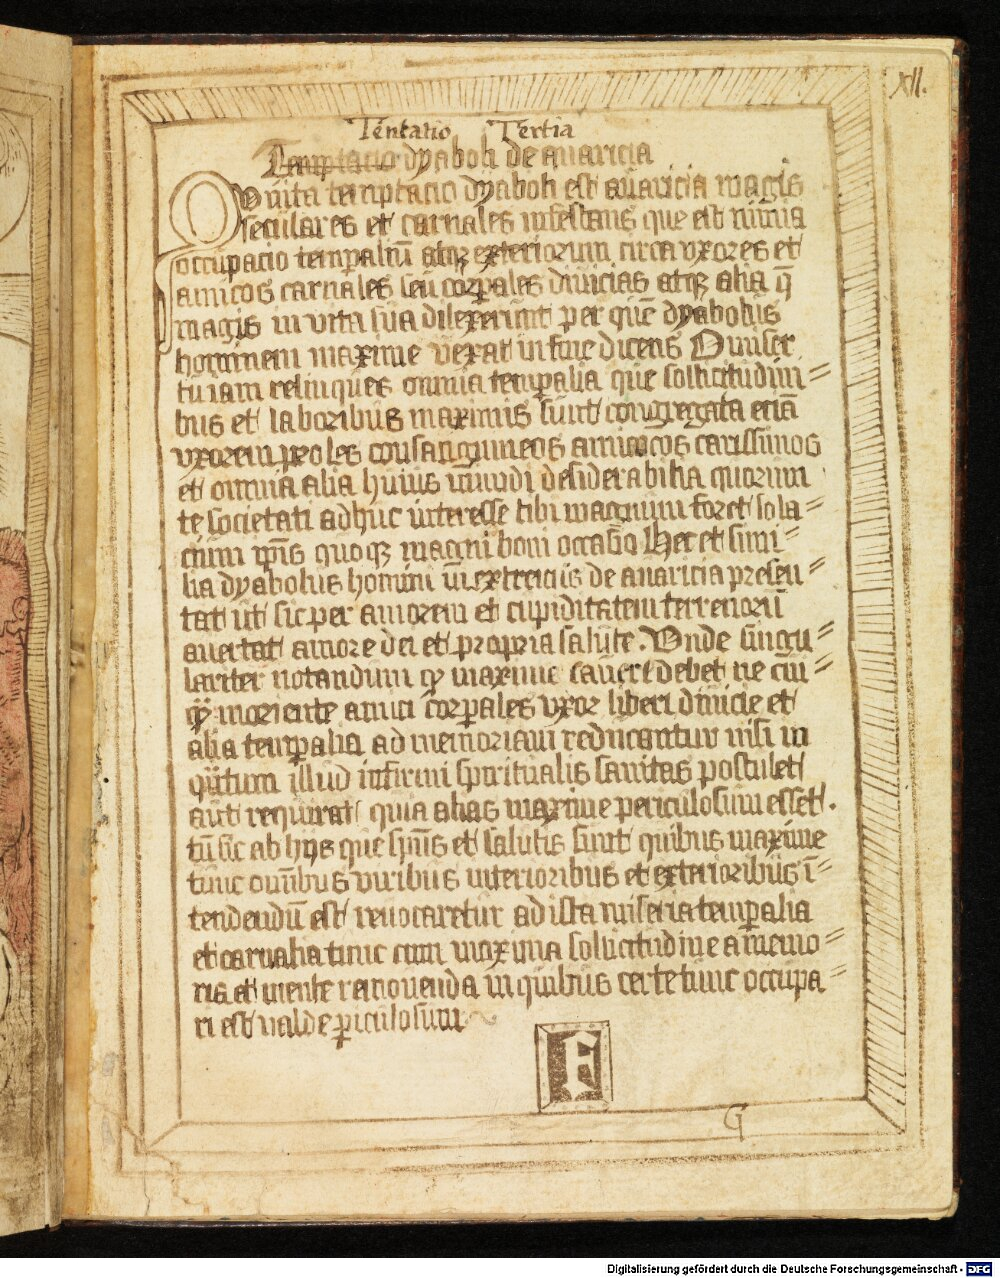 XII.
Tentatio Tertia
Temptacio dyaboli de auaricia
Quinta temptacio dyaboli est auaricia magis
seculares et carnales infestans que est nimia
occupacio temporaliū atqꝫ exteriorum circa vxores et
amicos carnales seu corꝑales diuicias atqꝫ alia q̄
magis in vita sua dilexerunt per quē dyabolus
hominem maxime vexat in fine dicens O miser
tu iam relinques omnia temꝑalia que sollicitudini=
bus et laboribus maximis sunt congregata eciā
vxorem proles consanguineos amicos carissimos
et omnia alia huius mūdi desiderabilia quorum
te societati adhuc interesse tibi magnum foret sola=
cium ip̄is quoqꝫ magni boni occasio Hec et simi=
lia dyabolus homini in extremis de auaricia presen=
tat ut sic per amorem et cupiditatem terrenorū
auertat amore dei et propria salute. Vnde singu=
lariter notandum qꝫ maxime caueri debet ne cui=
qꝫ moriente amici corꝑales vxor liberi diuicie et
alia temꝑalia ad memoriam reducantur nisi in
q̄ntum illud infirmi spiritualis sanitas postulet
aut requirat quia alias maxime periculosum esset.
cū sic ab hijs que spūs et salutis sunt quibus maxime
tunc omībus viribus interioribus et exterioribus ī=
tendendū est reuocaretur ad ista miseria temꝑalia
et carnalia tunc cum maxima sollicitudine a memo=
ria et mente remouenda in quibus certe tunc occupa=
ri est valde ꝑiculosum
F
G
Digitalisierung gefördert durch die Deutsche Forschungsgemeinschaft - DFG